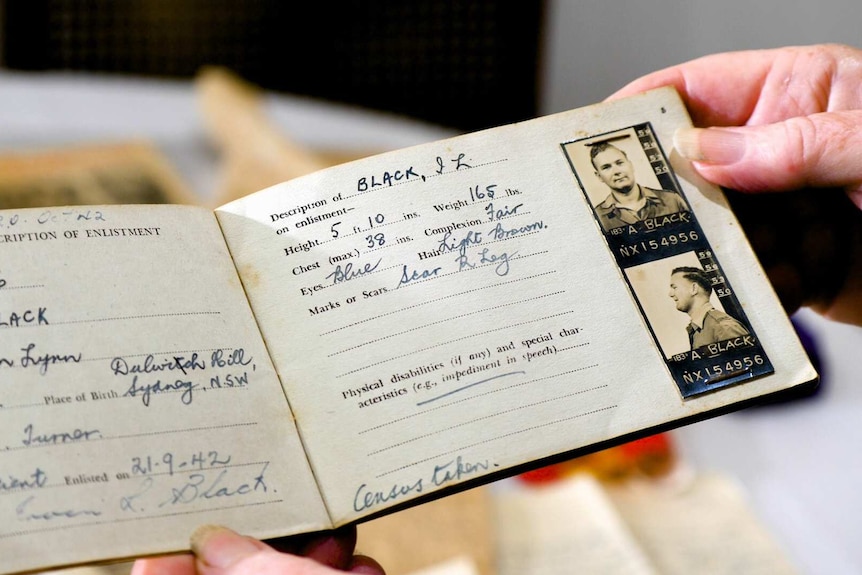 Oct 42
CRIPTION OF ENLISTMENT
LACK
Lynn
Place of Birth Dulwich Hill,
Sydney, NSW
Turner.
Enlisted on 21-9-42
L. Black.
5
Description of BLACK, I L
on enlistment—
Height 5 ft. 10 ins. Weight 165 lbs.
Chest (max.) 38 ins. Complexion Fair
Eyes Blue Hair Light Brown.
Marks or Scars Scar R Leg.
Physical disabilities (if any) and special char-
acteristics (e.g., impediment in speech)
Census taken.
183· A. BLACK.
NX154956
183· A. BLACK.
NX154956